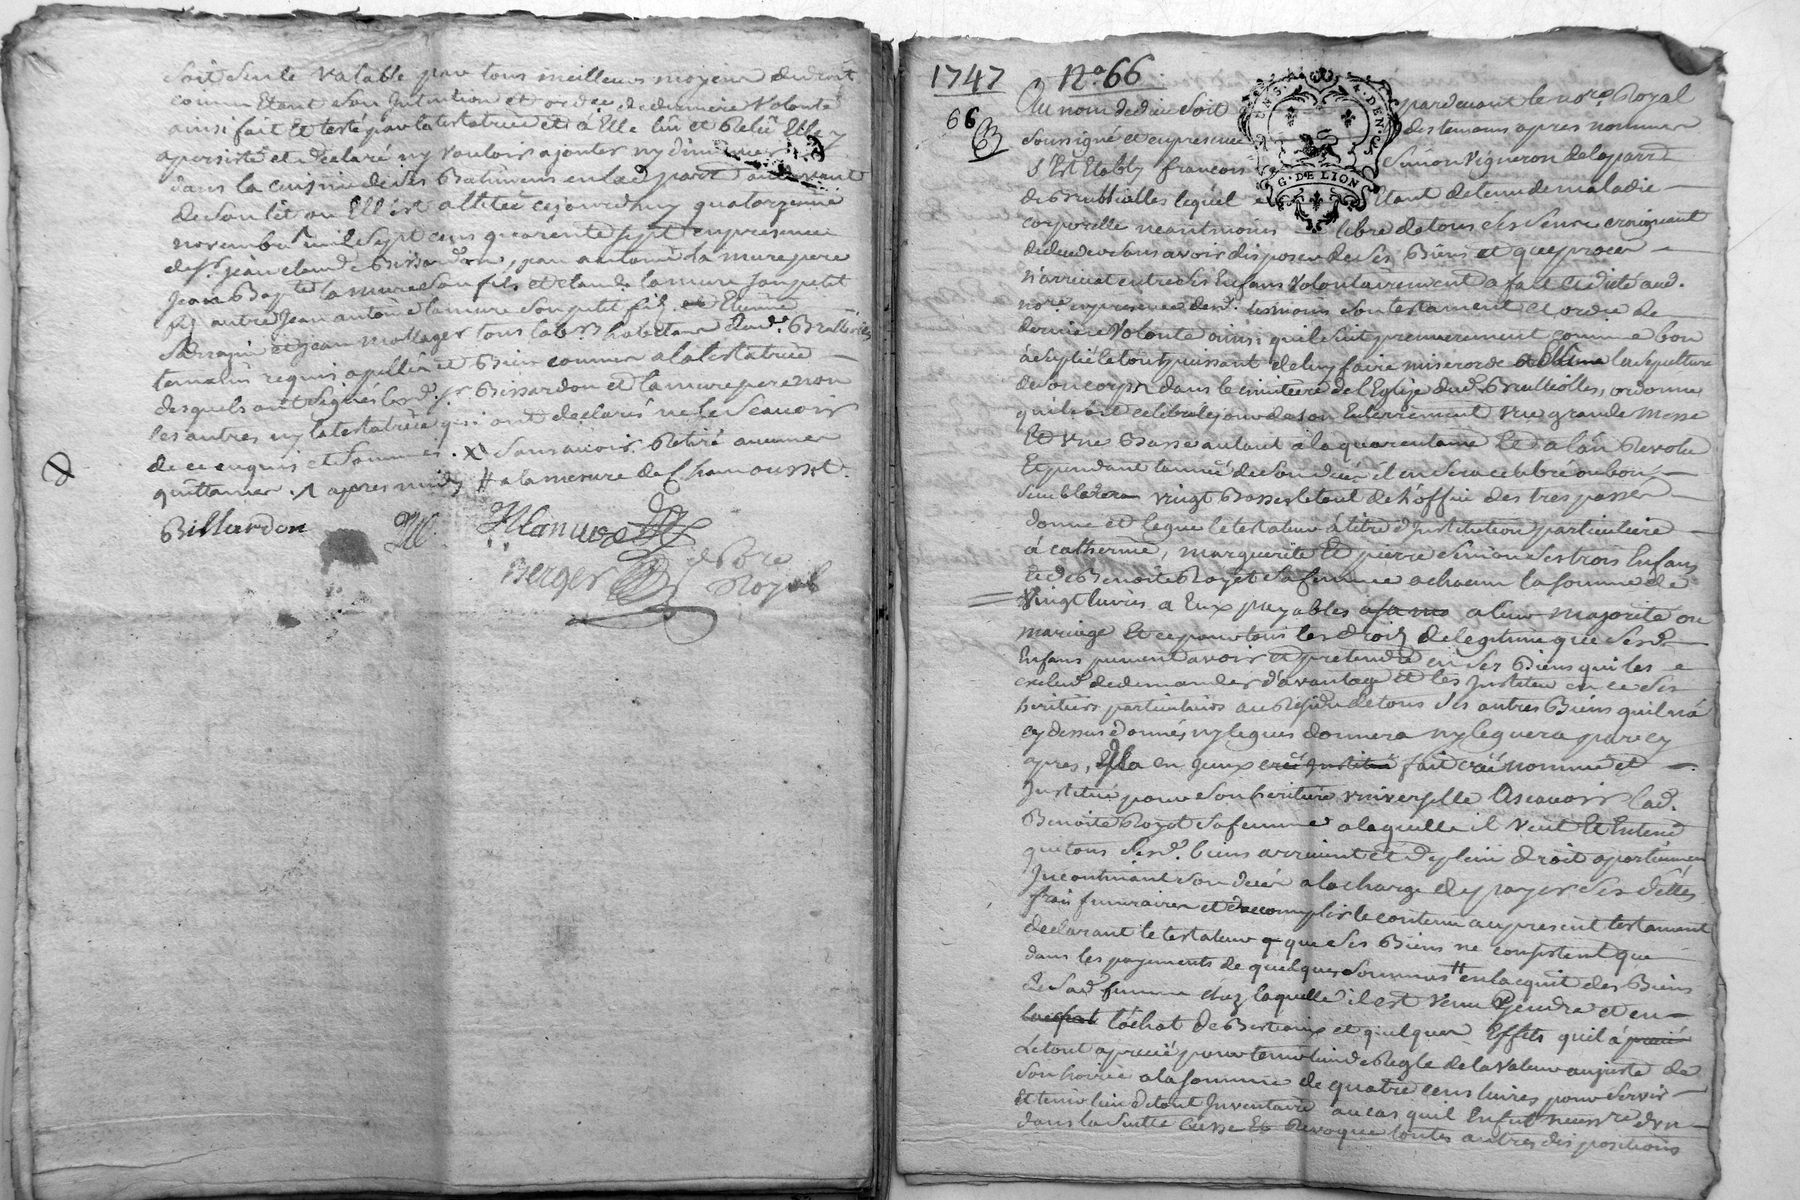 soit seule valable par tous meilleurs moyens de droit
comme étant son intention et ordce de derniere volonté
ainsi fait et testé par la testatrice et à elle lû et relû elle y
a persisté et declaré ny vouloir ajouter ny diminuer
dans la cuisine de ses batimens en lad parr
de son lit ou elle est allitée cejourdhuy quatorzieme
novembre mil sept cens quarente sept en presence
de sr jean claude Bissardon, jean antoine La mure pere
Jean Bapte lamure son fils et claude lamure son petit
fils autre Jean antoine lamure son petit fils Etienne
et jean mollager tous lab.rs habitans dud. Brullioles
temoins requis apellés et bien connus a la testatrice
desquels ont signés lesd. sr Bissardon et lamure pere non
les autres ny la testatrice qui ont declarés ne le scavoir
de ce enquis et sommés. X sans avoir retiré aucune
quittance. 1 apres midy # a la mesure de Chamousset.
Billardon JM. JAlamure
Berger nore
Royal
1747 No. 66
66
Au nom de dieu soit pardevant le nore. Royal
soussigné et en presence des temoins apres nommés
s'est etably francois Simion vigneron de la parr
de Brullioles lequel etant detenu de maladie
corporelle neantmoins libre de tous ses sens craignant
de deceder sans avoir disposer de ses biens et que proces
n'arrivat entre ses Enfans volontairement a fait et dicté aud.
nore. en presence desd. tesmoins son testament et ordce de
derniere volonté ainsi quil suit premierement comme bon
à suplié le tout puissant de luy faire misericorde la sepulture
de son corps dans le cimetiere de l'Eglise dud. Brullioles, ordonne
quil soit celebré le jour de son Enterrement une grande Messe
et une Basse autant a la quarentaine et a l'an revolu
Et pendant l'année de son deces il en sera celebré ou bon
semblera vingt Basses le tout de l'office des trespassés
donne et legue le testateur à titre d'Institution particuliere
à catherine, marguerite et pierre Simion ses trois Enfans
et de Benoite Royet sa femme a chacun la somme de
vingt livres a Eux payables a leur majorité ou
mariage Et ce pour tous les droits de legitime que sesd.
Enfans peuvent avoir et pretendre en ses biens quil les
exclud de demander d'avantage et les Institue en ce ses
heritiers particuliers au residu de tous ses autres Biens quil n'a
cy dessus donnés ny legués donnera ny leguera par cy
apres, Il a en Iceux créé Institué fait créé nommé et
Institué pour son heritiere universelle Ascavoir lad.
Benoite Royet sa femme a laquelle il veut et entend
que tous sesd. biens arrivent et de plein droit apartiennen
Incontinant son deces a la charge de payer ses dettes
frais funeraires et d'accomplir le contenu au present testament
declarant le testateur que ses Biens ne consistent que
dans les payements de quelques sommes # en lacquit des Biens
de Sad. femme chez laquelle il est venu Gendre et en
l'achat de Bestiaux et quelques Effets quil à
le tout aprecié pour tenir lieu de Regle de la valeur au juste de
son hoirie a la somme de quatre cens livres pour servir
et tenir lieu de tout Inventaire au cas quil En fut
dans la suitte casse Et revoque toutes autres dispositions
G. DE LION